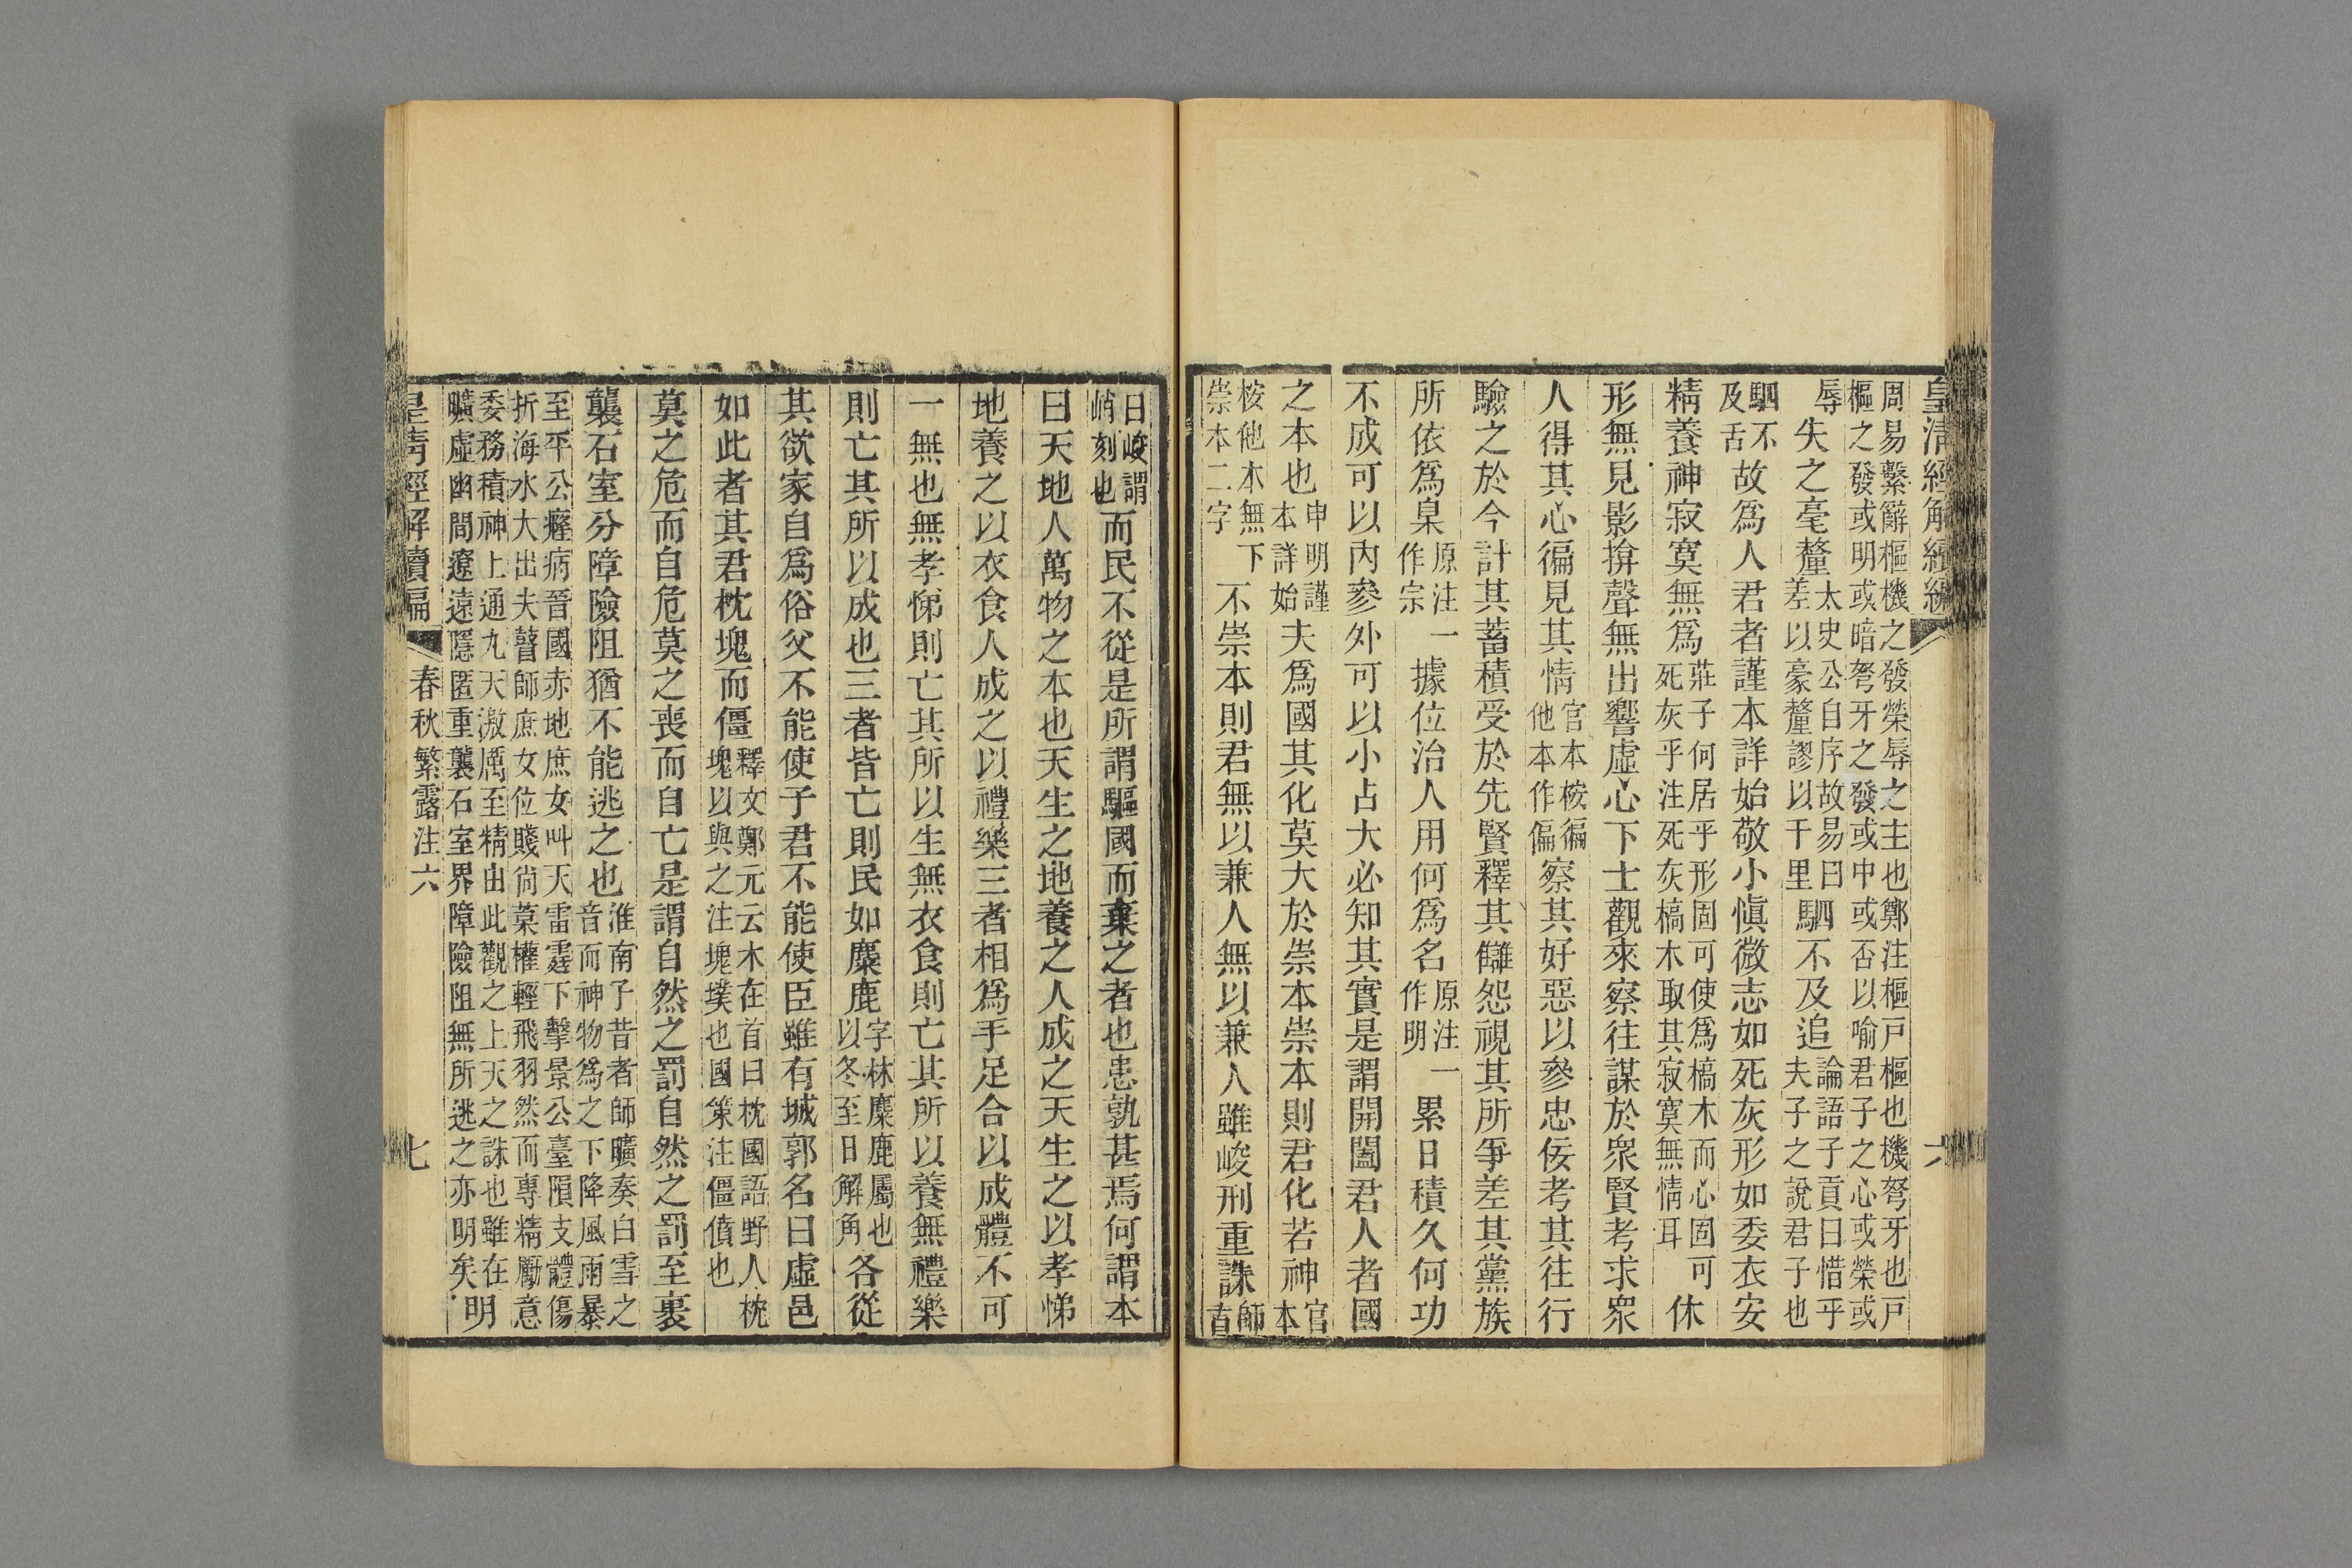 皇清經解續編
六
周易繫辭樞機之發榮辱之主也鄭注樞戶樞也機弩牙也戶
樞之發或明或暗弩牙之發或中或否以喻君子之心或榮或
辱
失之毫釐
太史公自序故易曰
差以豪釐謬以千里
駟不及追
論語子貢曰惜乎
夫子之說君子也
駟不
及舌
故爲人君者謹本詳始敬小愼微志如死灰形如委衣安
精養神寂寞無爲
莊子何居乎形固可使爲槁木而心固可
死灰乎注死灰槁木取其寂寞無情耳
休
形無見影揜聲無出響虛心下士觀來察往謀於衆賢考求衆
人得其心徧見其情
官本桉徧
他本作偏
察其好惡以參忠佞考其往行
驗之於今計其蓄積受於先賢釋其讎怨視其所爭差其黨族
所依爲臬
原注一
作宗
據位治人用何爲名
原注一
作明
累日積久何功
不成可以內參外可以小占大必知其實是謂開闔君人者國
之本也
申明謹
本詳始
夫爲國其化莫大於崇本崇本則君化若神
官
本
桉他本無下
崇本二字
不崇本則君無以兼人無以兼人雖峻刑重誅
師
古
曰峻謂
峭刻也
而民不從是所謂驅國而棄之者也患孰甚焉何謂本
曰天地人萬物之本也天生之地養之人成之天生之以孝悌
地養之以衣食人成之以禮樂三者相爲手足合以成體不可
一無也無孝悌則亡其所以生無衣食則亡其所以養無禮樂
則亡其所以成也三者皆亡則民如麋鹿
字林麋鹿屬也
以冬至日解角
各從
其欲家自爲俗父不能使子君不能使臣雖有城郭名曰虛邑
如此者其君枕塊而僵
釋文鄭元云木在首曰枕國語野人枕
塊以與之注塊墣也國策注僵僨也
莫之危而自危莫之喪而自亡是謂自然之罰自然之罰至裹
襲石室分障險阻猶不能逃之也
淮南子昔者師曠奏白雪之
音而神物爲之下降風雨暴
至平公癃病晉國赤地庶女叫天雷霆下擊景公臺隕支體傷
折海水大出夫瞽師庶女位賤尙葈權輕飛羽然而專精厲意
委務積神上通九天激厲至精由此觀之上天之誅也雖在
曠虛幽閒遼遠隱匿重襲石室界障險阻無所逃之亦明矣
明
皇清經解續編
春秋繁露注六
七